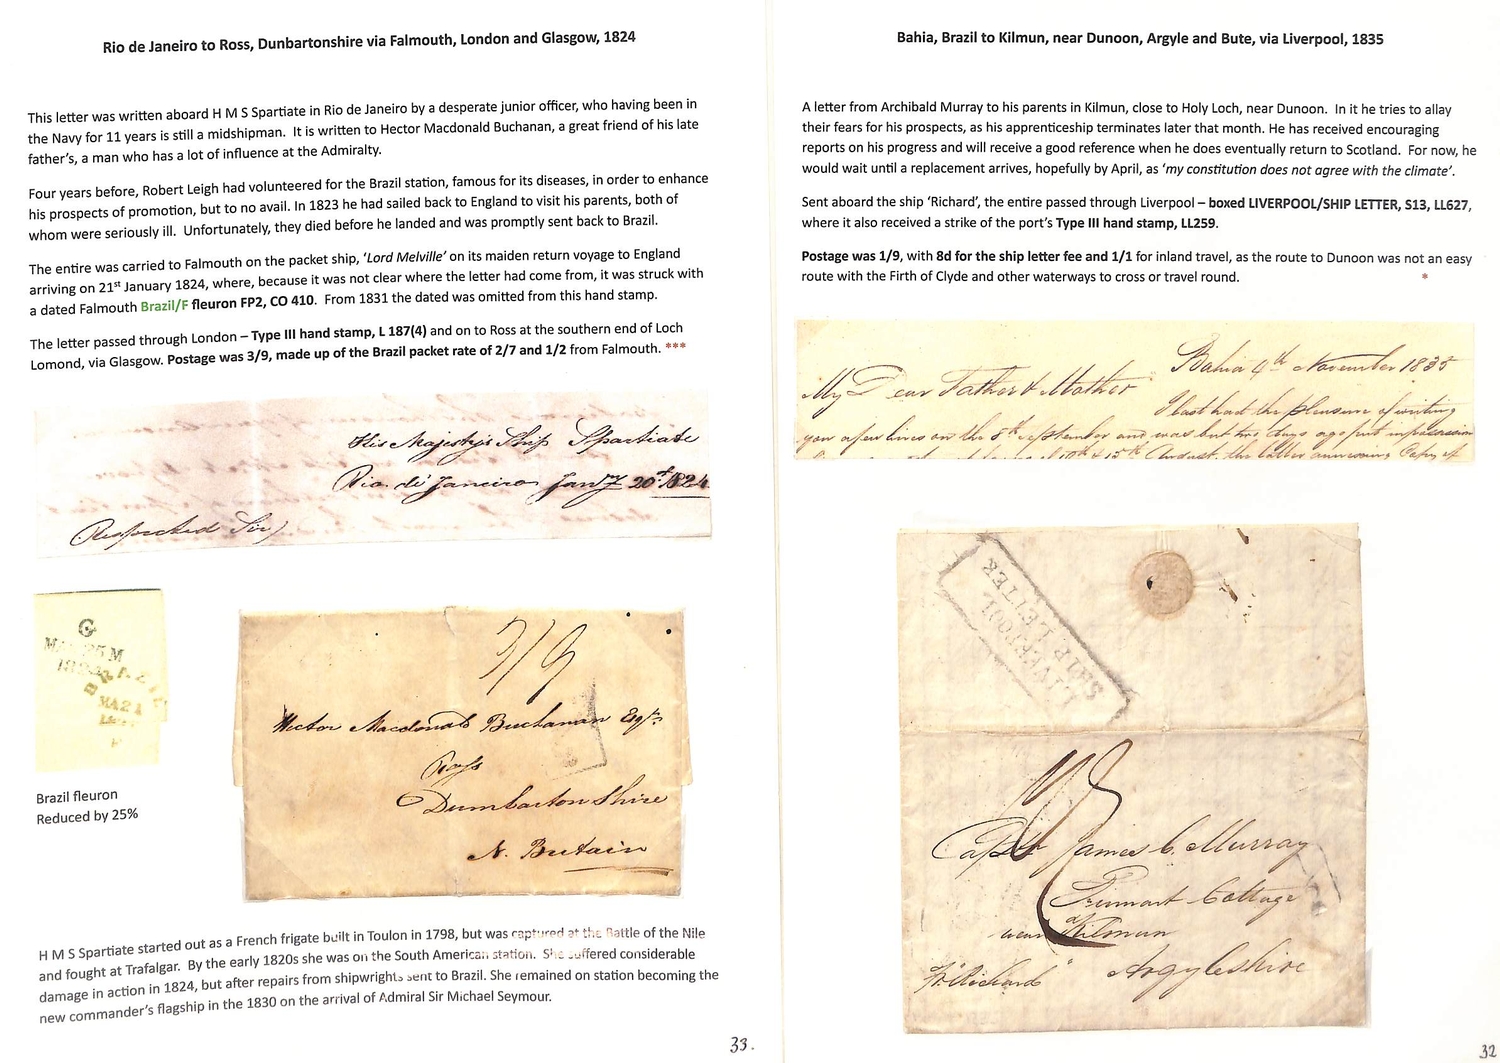 Rio de Janeiro to Ross, Dunbartonshire via Falmouth, London and Glasgow, 1824
This letter was written aboard H M S Spartiate in Rio de Janeiro by a desperate junior officer, who having been in
the Navy for 11 years is still a midshipman.  It is written to Hector Macdonald Buchanan, a great friend of his late
father's, a man who has a lot of influence at the Admiralty.
Four years before, Robert Leigh had volunteered for the Brazil station, famous for its diseases, in order to enhance
his prospects of promotion, but to no avail. In 1823 he had sailed back to England to visit his parents, both of
whom were seriously ill.  Unfortunately, they died before he landed and was promptly sent back to Brazil.
The entire was carried to Falmouth on the packet ship, 'Lord Melville' on its maiden return voyage to England
arriving on 21st January 1824, where, because it was not clear where the letter had come from, it was struck with
a dated Falmouth Brazil/F fleuron FP2, CO 410.  From 1831 the dated was omitted from this hand stamp.
The letter passed through London – Type III hand stamp, L 187(4) and on to Ross at the southern end of Loch
Lomond, via Glasgow. Postage was 3/9, made up of the Brazil packet rate of 2/7 and 1/2 from Falmouth. ***
His Majesty's Ship Spartiate
Rio de Janeiro Jany 20th 1824
Respected Sir
G
BRAZIL
MA21
Brazil fleuron
Reduced by 25%
3/9
Hector Macdonald Buchanan Esqr
Ross
Dumbartonshire
N. Britain
H M S Spartiate started out as a French frigate built in Toulon in 1798, but was captured at the Battle of the Nile
and fought at Trafalgar.  By the early 1820s she was on the South American station.  She suffered considerable
damage in action in 1824, but after repairs from shipwrights sent to Brazil. She remained on station becoming the
new commander's flagship in the 1830 on the arrival of Admiral Sir Michael Seymour.
33.
Bahia, Brazil to Kilmun, near Dunoon, Argyle and Bute, via Liverpool, 1835
A letter from Archibald Murray to his parents in Kilmun, close to Holy Loch, near Dunoon.  In it he tries to allay
their fears for his prospects, as his apprenticeship terminates later that month. He has received encouraging
reports on his progress and will receive a good reference when he does eventually return to Scotland.  For now, he
would wait until a replacement arrives, hopefully by April, as 'my constitution does not agree with the climate'.
Sent aboard the ship 'Richard', the entire passed through Liverpool – boxed LIVERPOOL/SHIP LETTER, S13, LL627,
where it also received a strike of the port's Type III hand stamp, LL259.
Postage was 1/9, with 8d for the ship letter fee and 1/1 for inland travel, as the route to Dunoon was not an easy
route with the Firth of Clyde and other waterways to cross or travel round. *
Bahia 4th November 1835
My Dear Father & Mother
I last had the pleasure of writing
you a few lines on the 8th September and was but two days ago put in possession
August, the latter annexing Copy of
LIVERPOOL
SHIP LETTER
Captn James C. Murray
Cottage
near Kilmun
Argyleshire
pr "Richard"
32